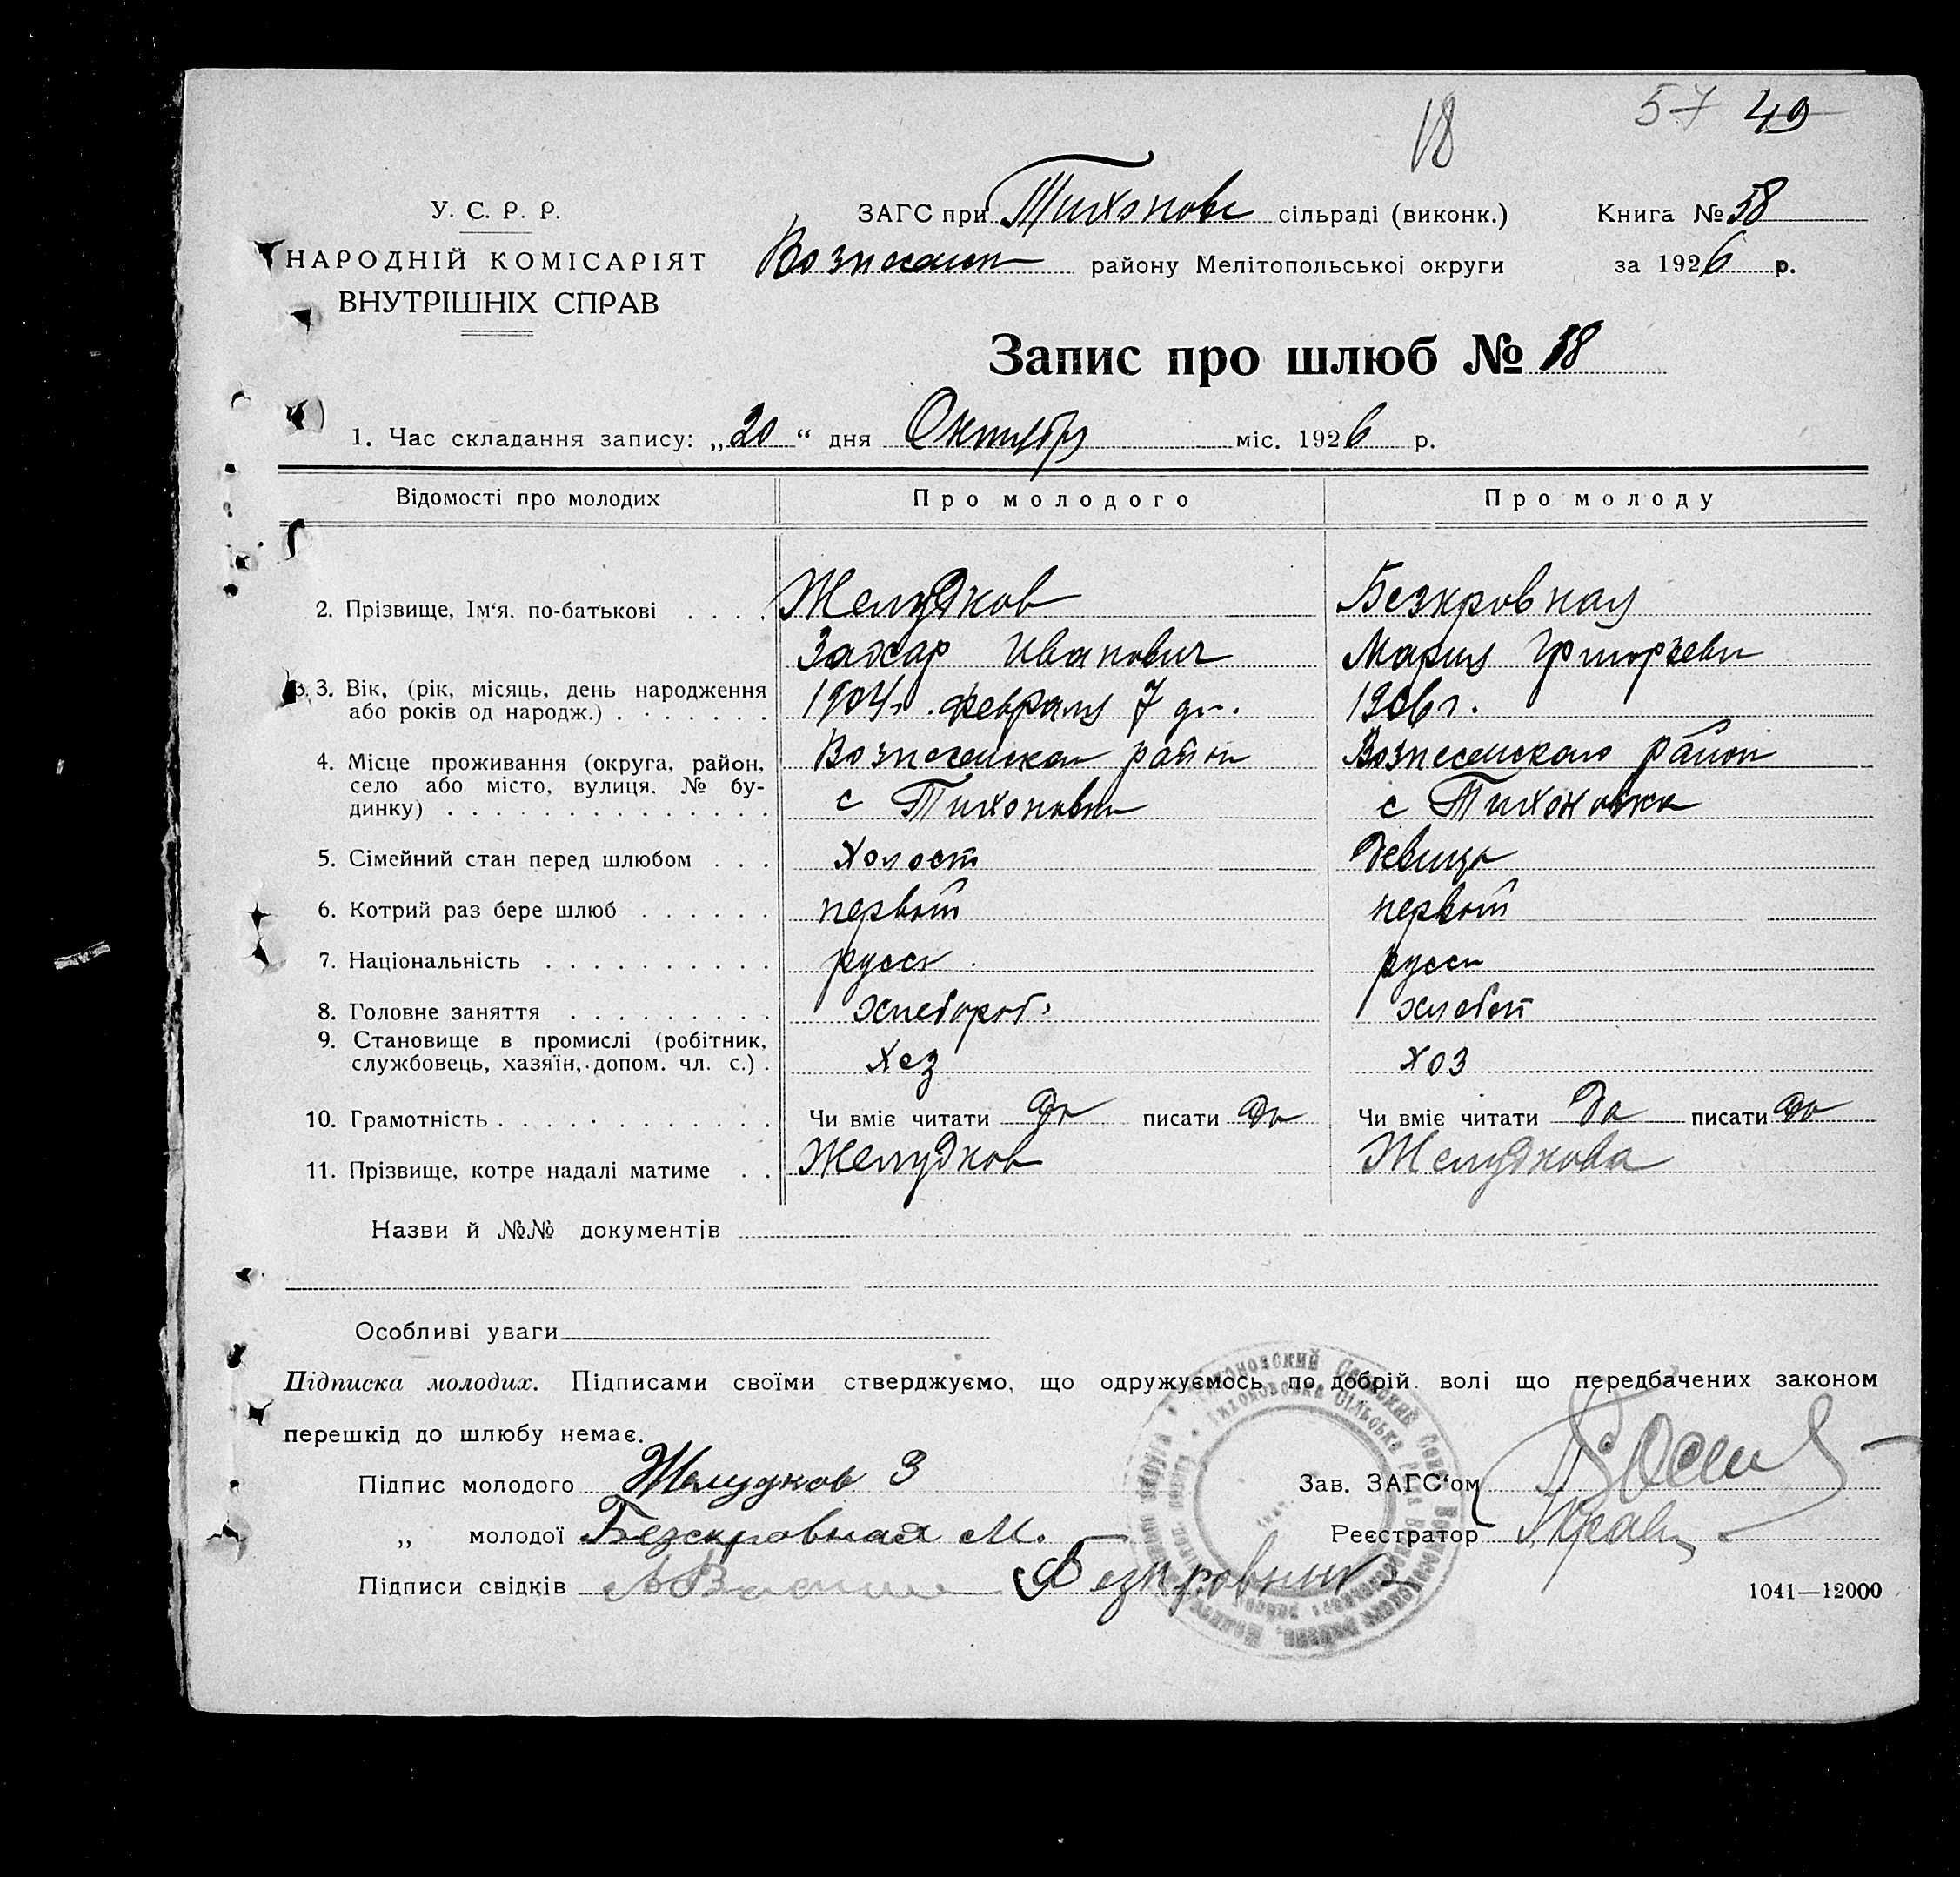 18 57 49
У. С. Р. Р.
НАРОДНІЙ КОМІСАРІЯТ
ВНУТРІШНІХ СПРАВ
ЗАГС при Тихоновс сільраді (виконк.) Книга № 58
Вознесенск району Мелітопольської округи за 1926 р.
Запис про шлюб № 58
1. Час складання запису: „20“ дня Октября міс. 1926 р.
Відомості про молодих Про молодого Про молоду
2. Прізвище, Ім‘я, по-батькові Желудков Безкровная
Захар Иванович Мария Григорьевн
3. Вік, (рік, місяць, день народження 1904 г. февраля 7 дн. 1906 г.
або років од народж.)
4. Місце проживання (округа, район, Вознесенскаи район Вознесенскаго район
село або місто, вулиця, № бу- с Тихоновка с Тихоновка
динку)
5. Сімейний стан перед шлюбом холост девица
6. Котрий раз бере шлюб первый первый
7. Національність русск русск
8. Головне заняття хлебороб.
9. Становище в промислі (робітник,
службовець, хазяїн, допом. чл. с.) хоз хоз
10. Грамотність Чи вміє читати да писати да Чи вміє читати да писати да
11. Прізвище, котре надалі матиме Желудков Желудкова
Назви й №№ документів
Особливі уваги
Підписка молодих. Підписами своїми стверджуємо, що одружуємось по добрій волі що передбачених законом
перешкід до шлюбу немає.
Підпис молодого Желудков З Зав. ЗАГС‘ом
„ молодої Безкровная М. Реєстратор Кравц
Підписи свідків 1041—12000